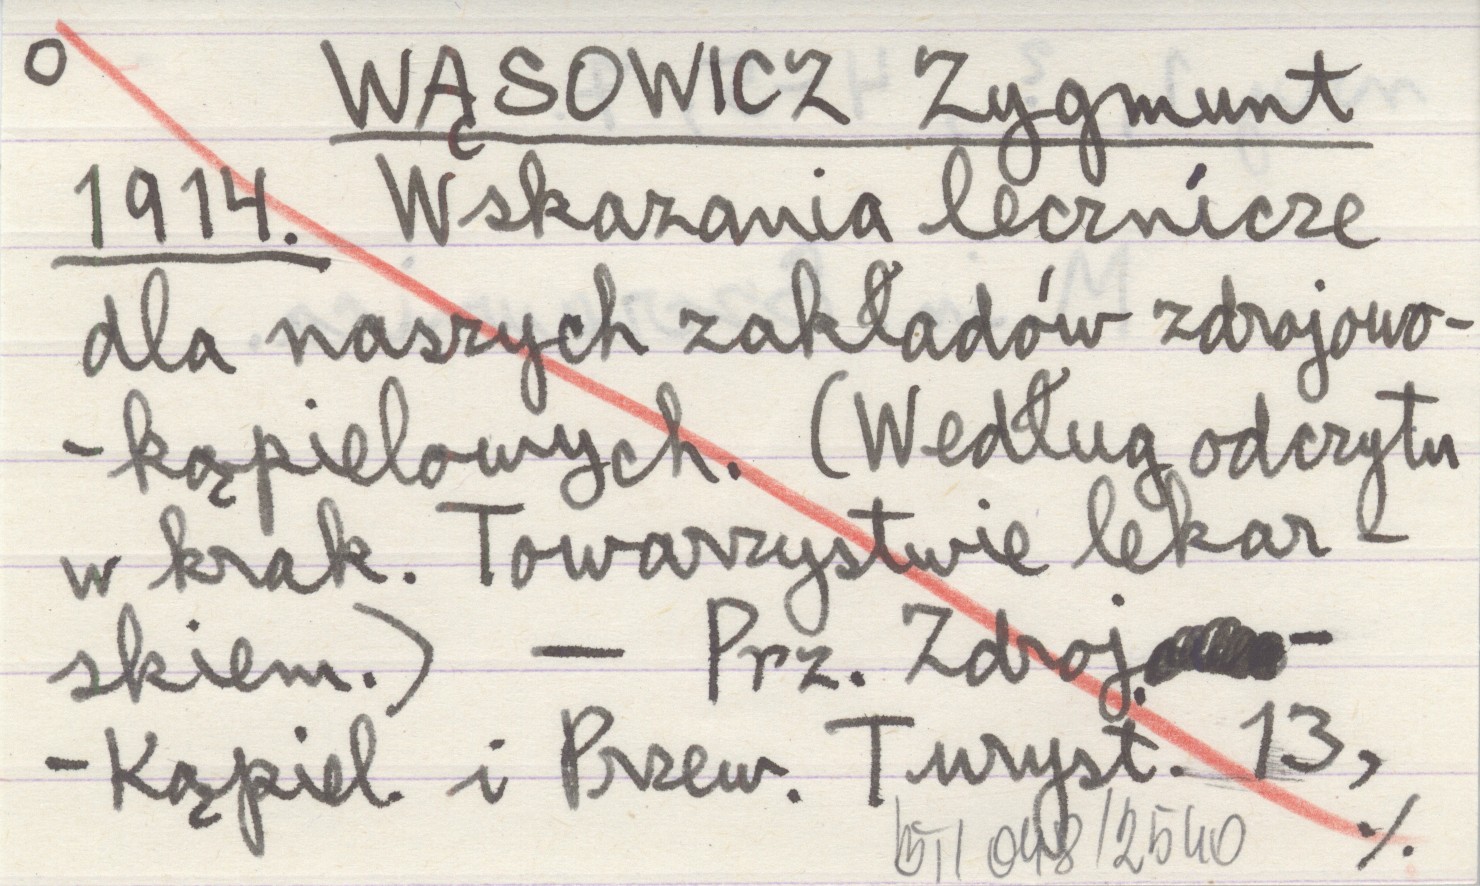 O WĄSOWICZ Zygmunt
1914. Wskazania lecznicze
dla naszych zakładów zdrojowo-
-kąpielowych. (Według odczytu
w krak. Towarzystwie lekar-
skiem.) — Prz. Zdroj. -
-Kąpiel. i Przew. Turyst. 13,
048/2540 ./.